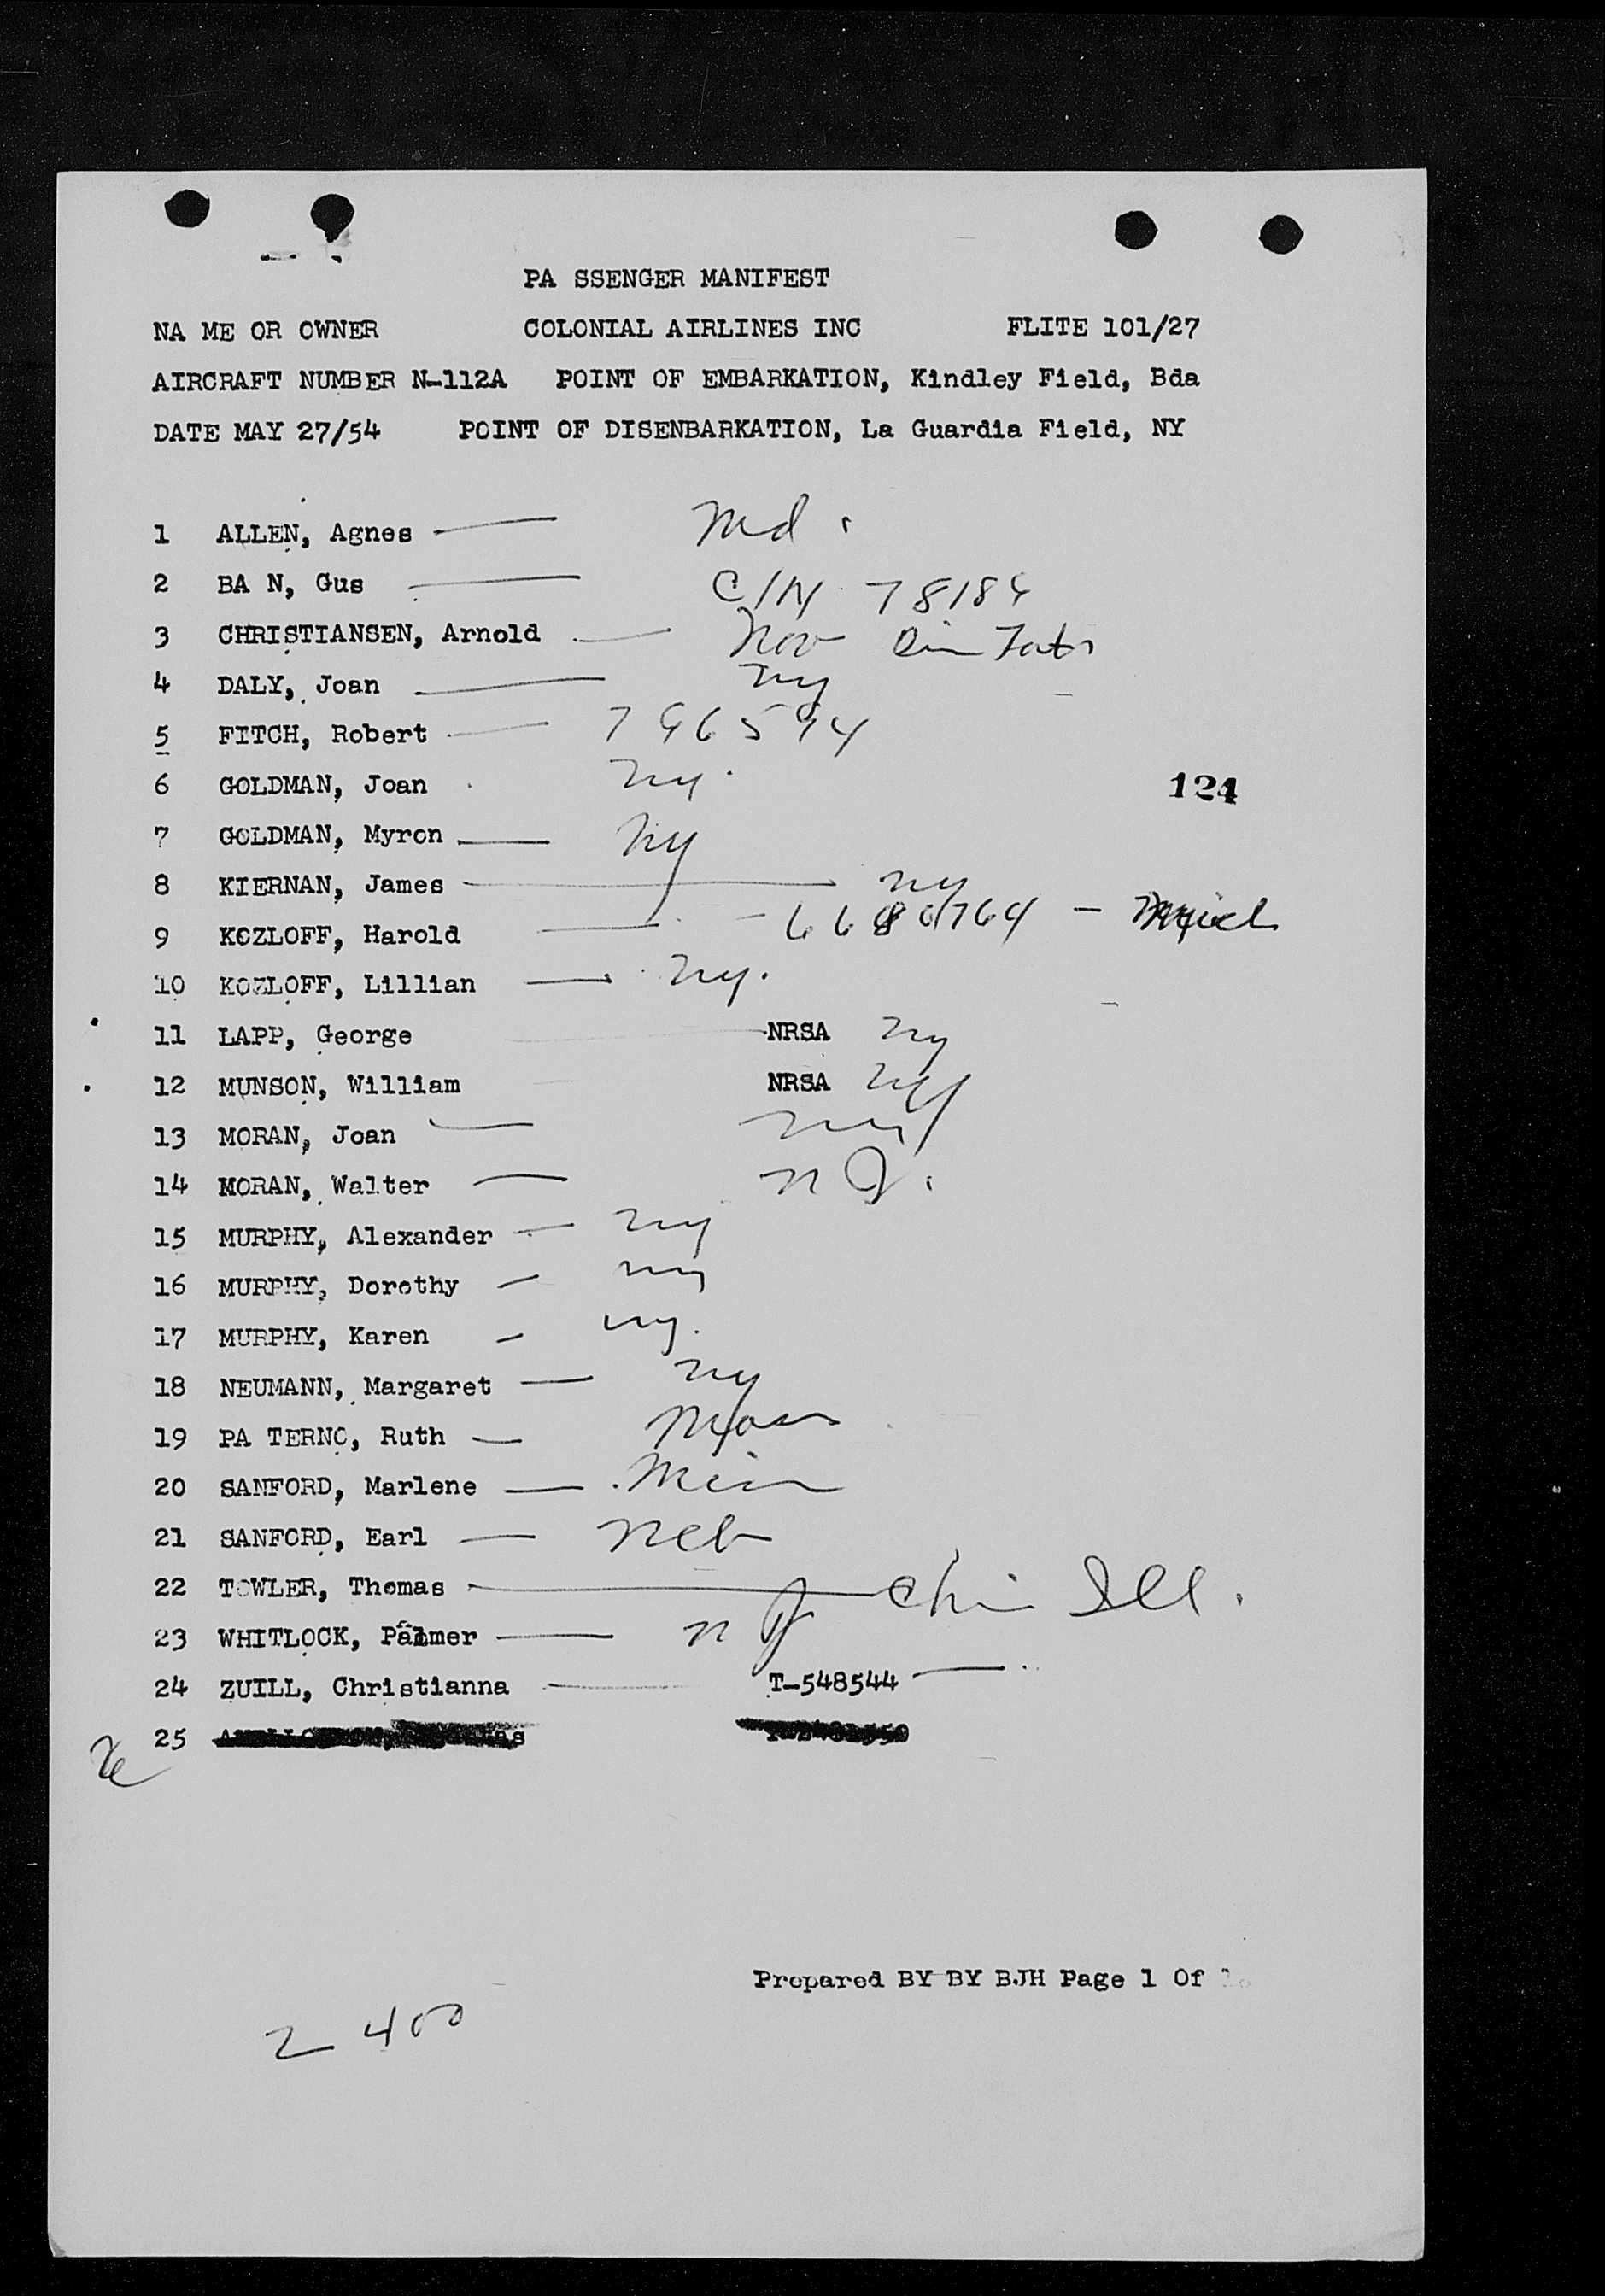 PA SSENGER MANIFEST
NA ME OR OWNER COLONIAL AIRLINES INC FLITE 101/27
AIRCRAFT NUMBER N-112A POINT OF EMBARKATION, Kindley Field, Bda
DATE MAY 27/54 POINT OF DISENBARKATION, La Guardia Field, NY
1 ALLEN, Agnes Md.
2 BA N, Gus C/N
3 CHRISTIANSEN, Arnold
4 DALY, Joan Ny
5 FITCH, Robert
6 GOLDMAN, Joan Ny. 124
7 GOLDMAN, Myron Ny
8 KIERNAN, James Ny
9 KOZLOFF, Harold
10 KOZLOFF, Lillian Ny.
11 LAPP, George NRSA Ny
12 MUNSON, William NRSA Ny
13 MORAN, Joan Ny
14 MORAN, Walter N J.
15 MURPHY, Alexander Ny
16 MURPHY, Dorothy Ny
17 MURPHY, Karen Ny.
18 NEUMANN, Margaret Ny
19 PA TERNO, Ruth Mass
20 SANFORD, Marlene Minn
21 SANFORD, Earl Neb
22 TOWLER, Thomas Chi Ill.
23 WHITLOCK, Palmer N J
24 ZUILL, Christianna T-548544
25
Prepared BY BY BJH Page 1 Of
2 400